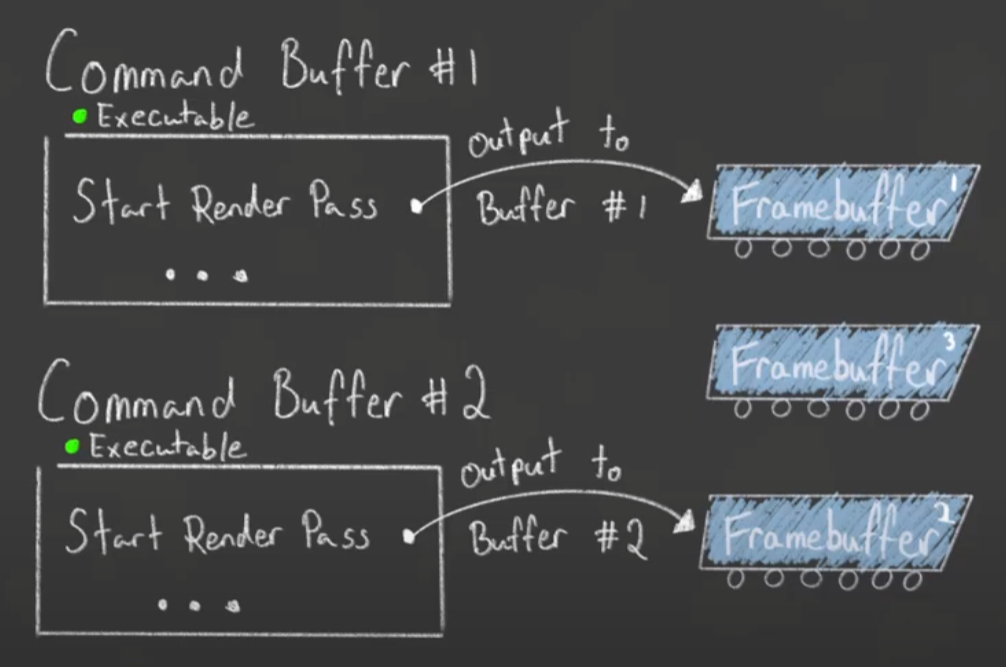 Command Buffer #1
Executable
Start Render Pass
...
Output to
Buffer #1
Framebuffer 1
Framebuffer 3
Command Buffer #2
Executable
Start Render Pass
...
Output to
Buffer #2
Framebuffer 2